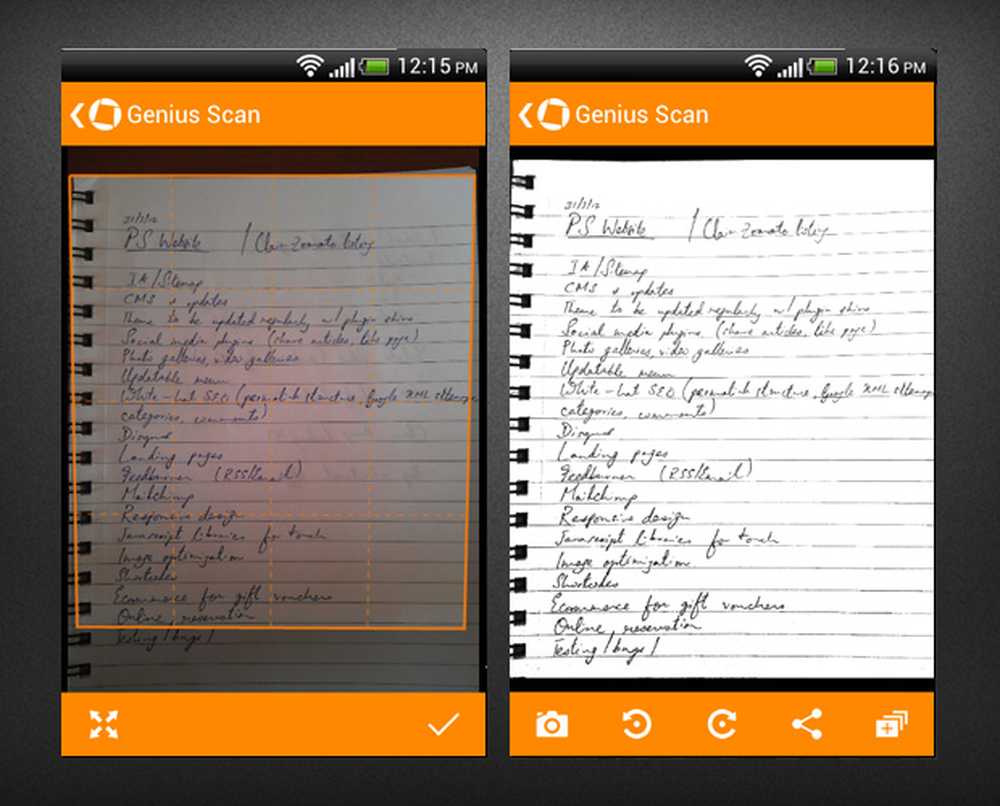 12:15 PM
Genius Scan
31/3/12
PS Website /
IA/Sitemap
CMS & updates
Theme to be updated regularly w/ plugin skins
Social media plugins (share articles, like page)
Photo galleries, video galleries
Updatable menu
White-hat SEO (permalink structure, Google XML sitemap
categories, comments)
Disqus
Landing pages
Feedburner (RSS/Email)
Mailchimp
Responsive design
Javascript libraries for touch
Image optimization
Shortcodes
Ecommerce for gift vouchers
Online reservation
Testing/bugs/
12:16 PM
Genius Scan
31/3/12
PS Website /
IA/Sitemap
CMS & updates
Theme to be updated regularly w/ plugin skins
Social media plugins (share articles, like page)
Photo galleries, video galleries
Updatable menu
White-hat SEO (permalink structure, Google XML sitemap
categories, comments)
Disqus
Landing pages
Feedburner (RSS/Email)
Mailchimp
Responsive design
Javascript libraries for touch
Image optimization
Shortcodes
Ecommerce for gift vouchers
Online reservation
Testing/bugs/